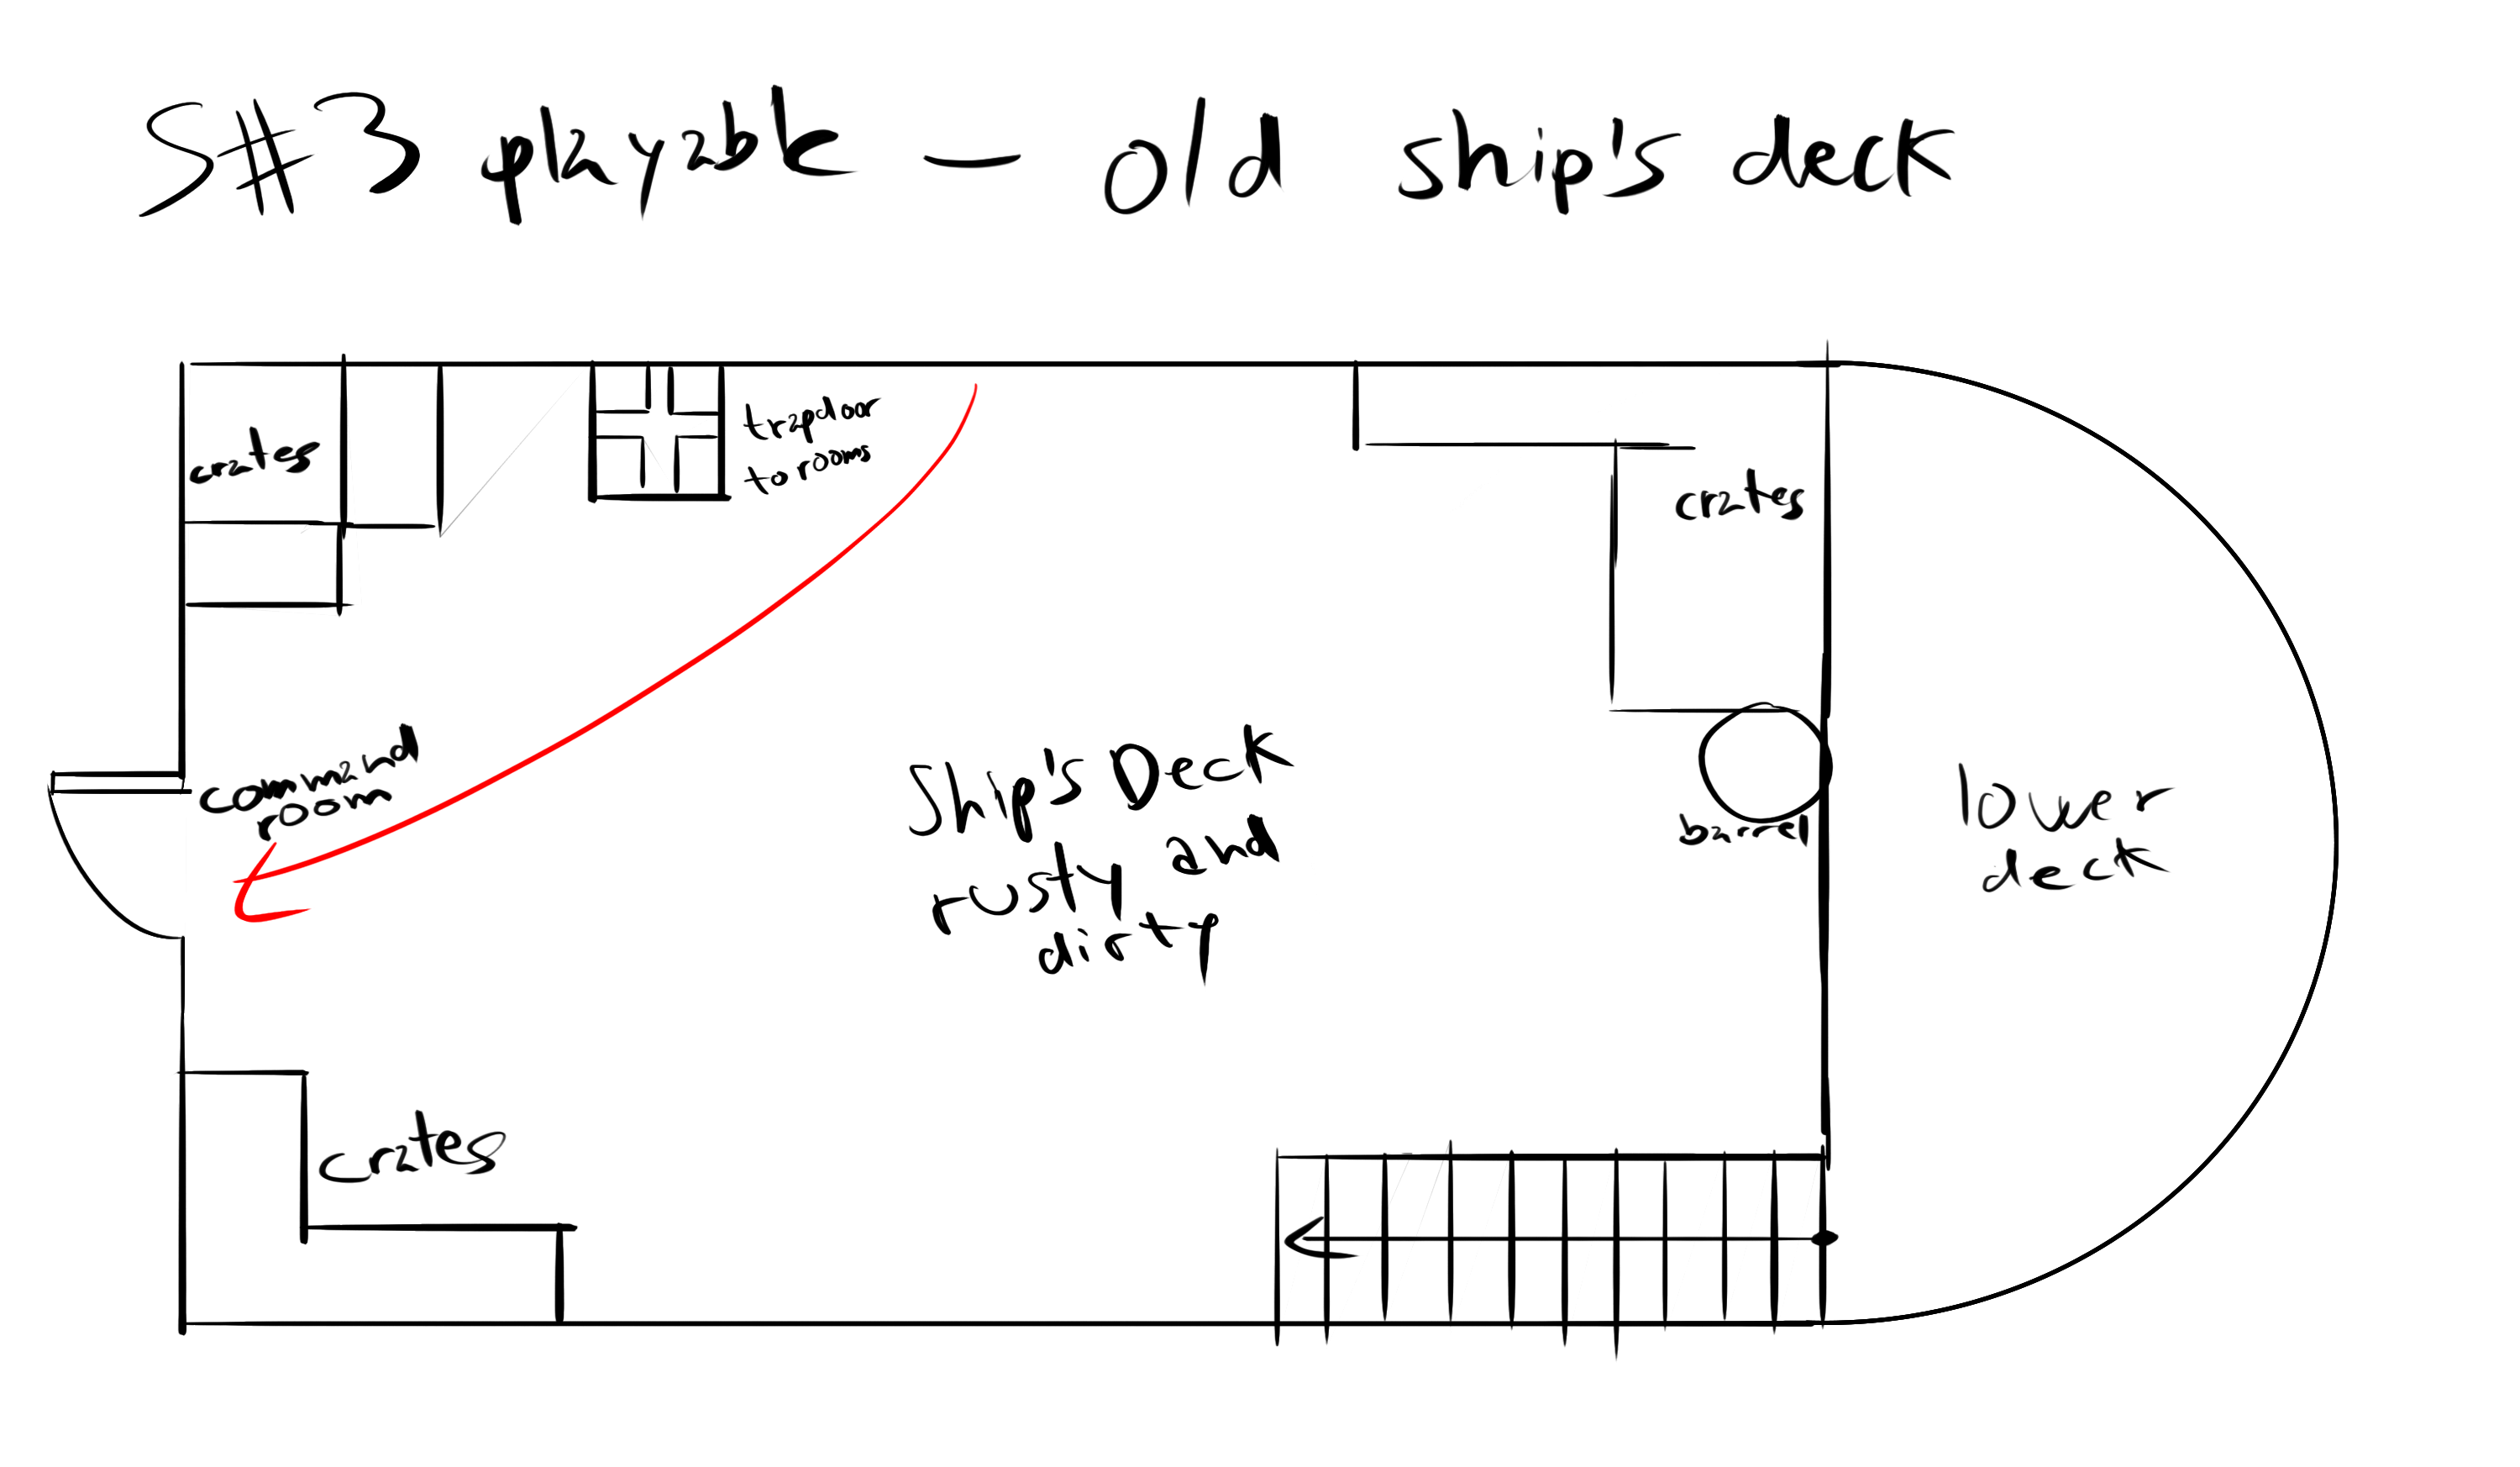 S#3 playable — old ship's deck
crates
trapdoor
to rooms
crates
command
room
Ship's Deck
rusty and
dirty
barrel
lower
deck
crates